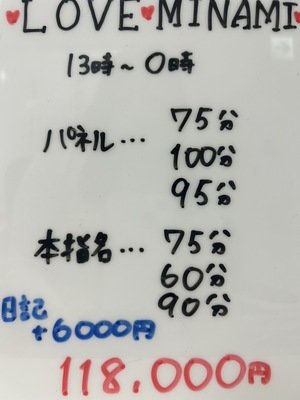 ♥LOVE♥MINAMI♥
13時~0時
パネル… 75分
100分
95分
本指名… 75分
60分
90分
日記
+6000円
118,000円